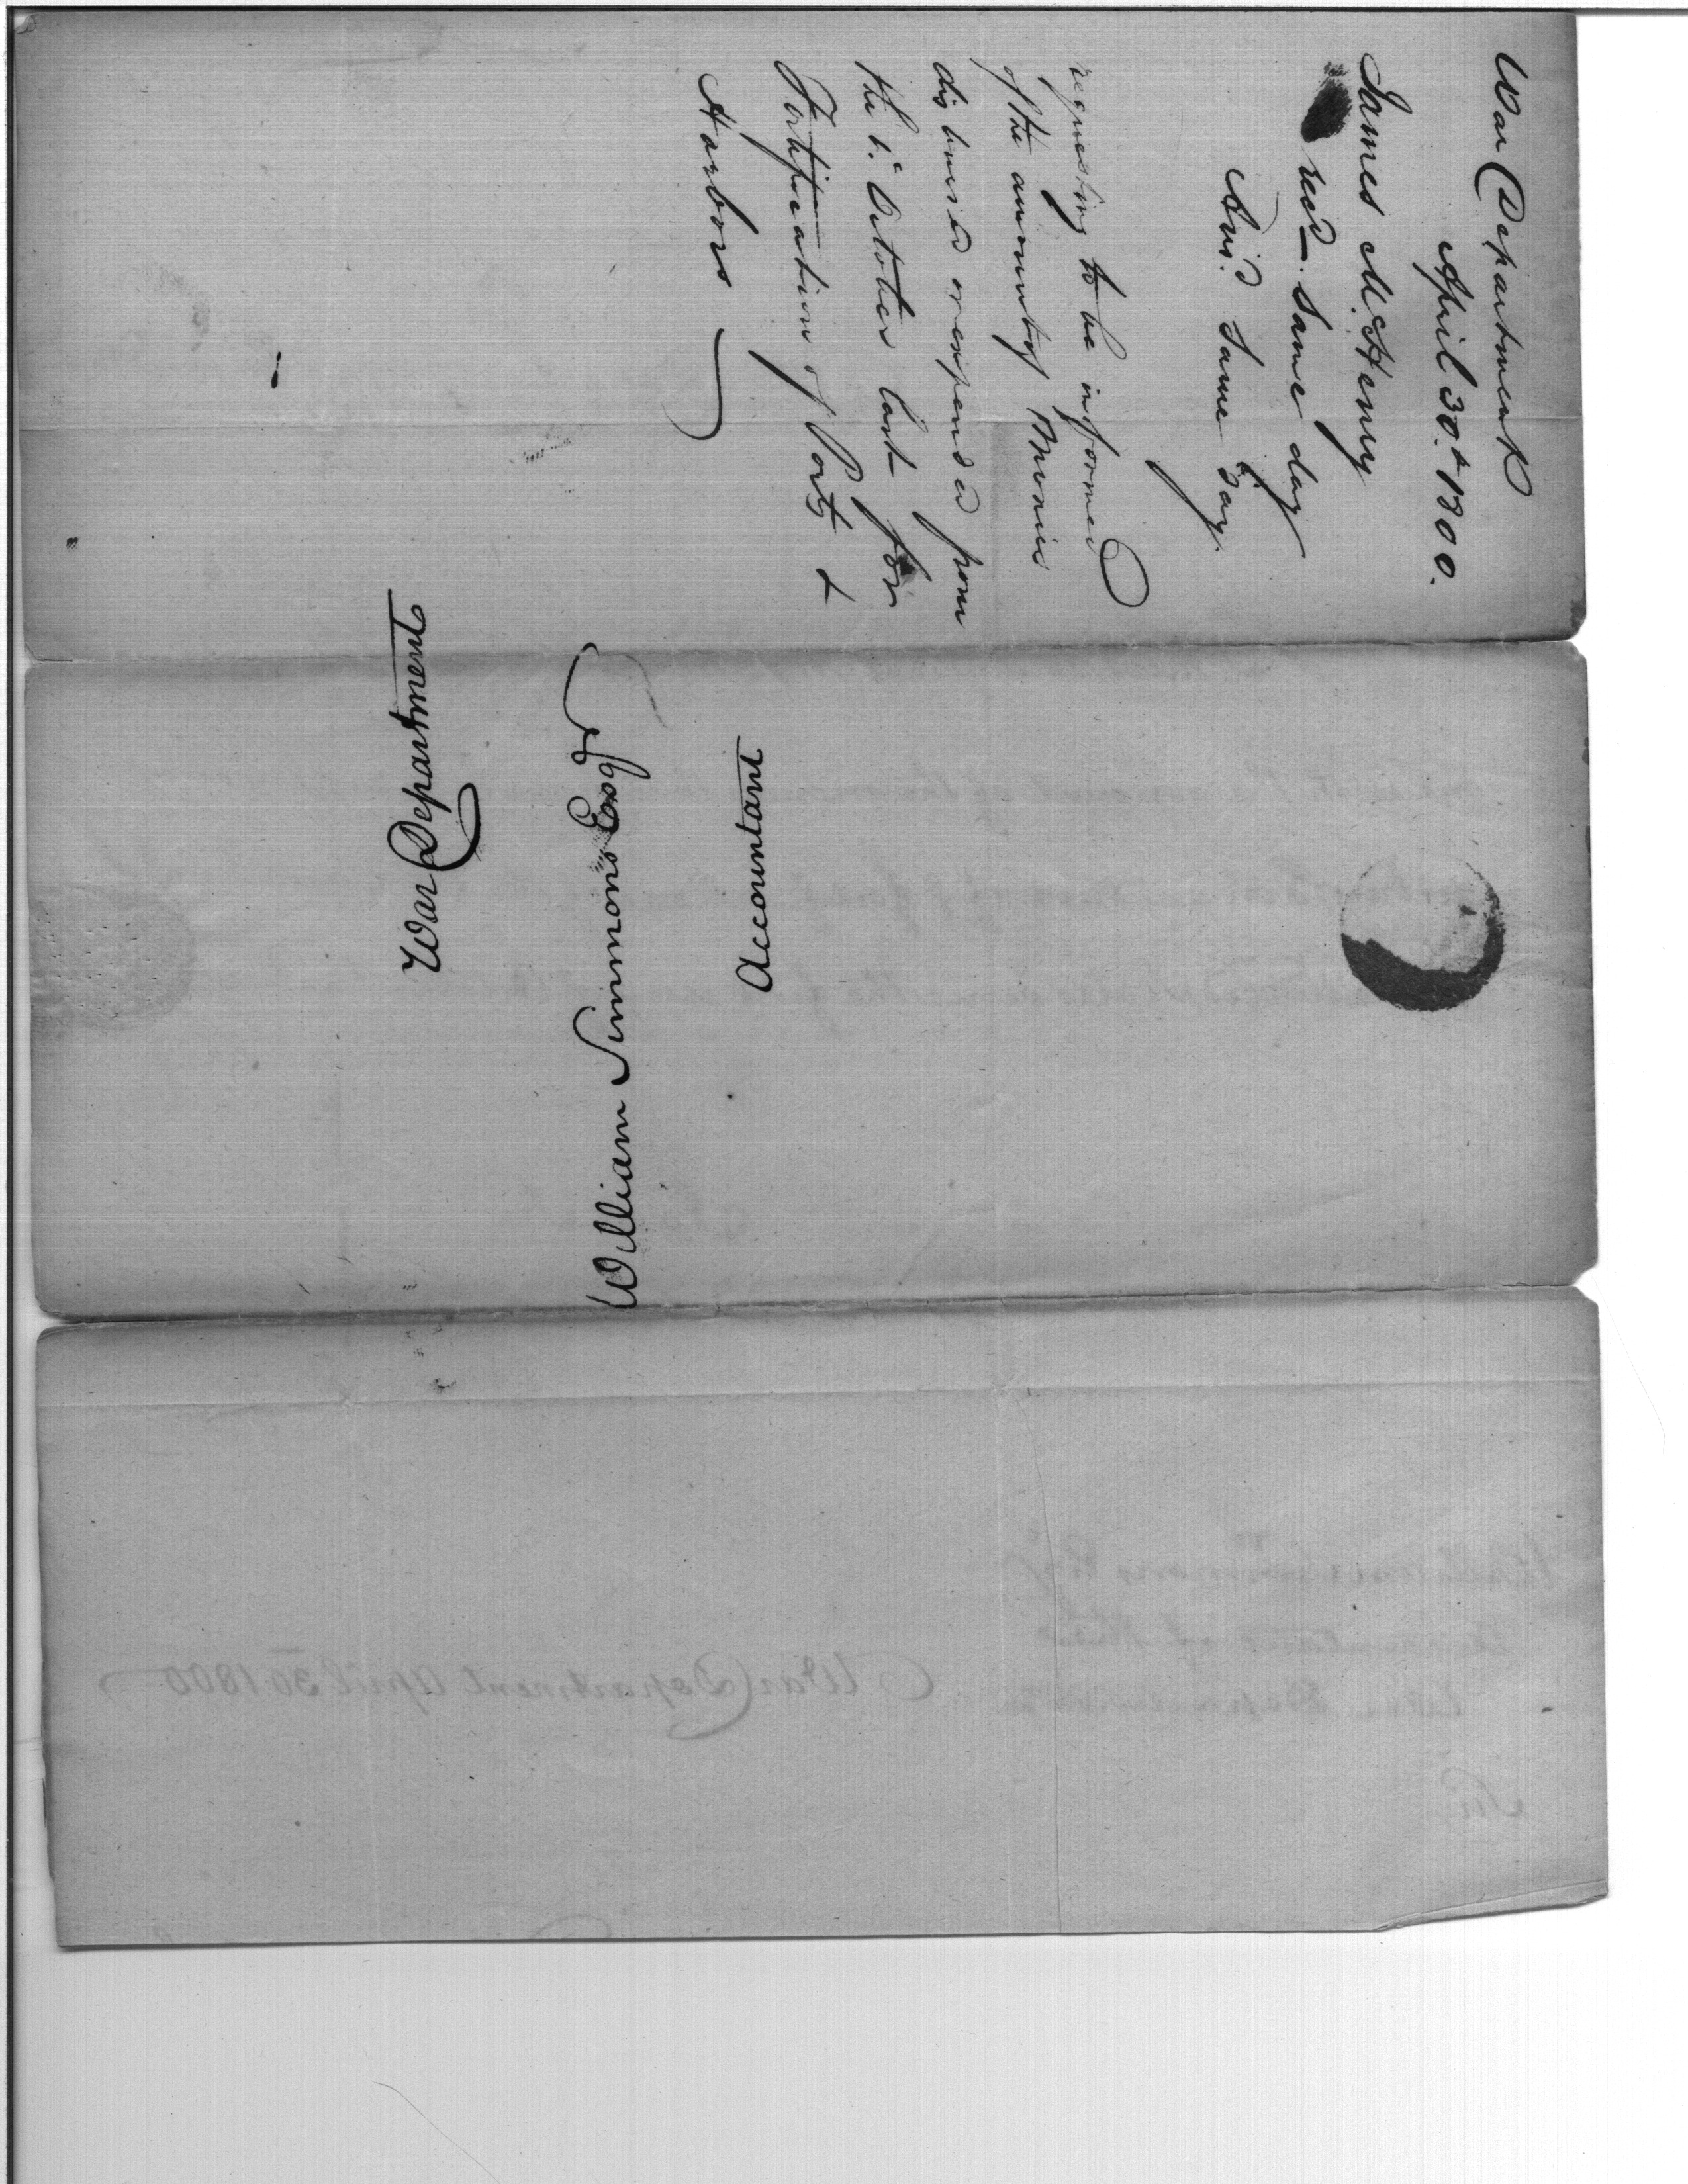 War Department
April 30th 1800.
James McHenry
recd. Same day
Ansd. Same day.
requesting to be informed
of the amount of Monies
disbursed or expended from
the 1st October last for
Fortification of Ports &
Harbors
War Department
William Simmons Esqr
Accountant
War Department April 30 1800
William Simmons Esqr
Accountant of the
War Department
Sir